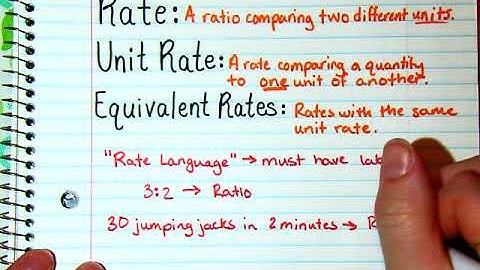 Rate: A ratio comparing two different units.
Unit Rate: A rate comparing a quantity
to one unit of another.
Equivalent Rates: Rates with the same
unit rate.
"Rate Language" → must have
3:2 → Ratio
30 jumping jacks in 2 minutes →